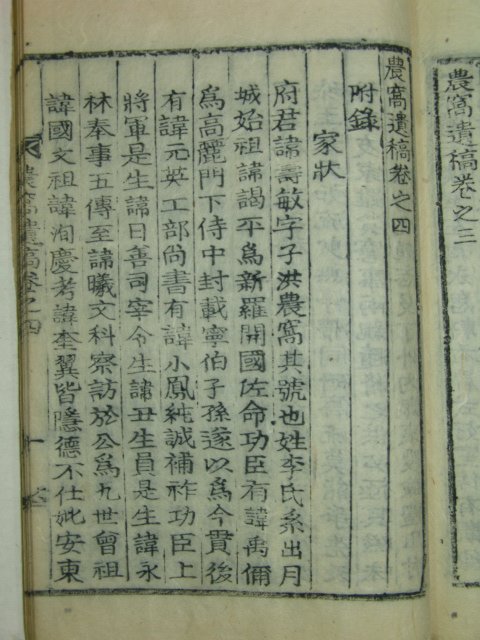 農窩遺稿卷之三
農窩遺稿卷之四
附錄
家狀
府君諱壽敏字子洪農窩其號也姓李氏系出月
城始祖諱謁平爲新羅開國佐命功臣有諱禹偁
爲高麗門下侍中封載寧伯子孫遂以爲今貫後
有諱元英工部尚書有諱小鳳純誠補祚功臣上
將軍是生諱日善司宰令生諱丑生員是生諱永
林奉事五傳至諱曦文科察訪於公爲九世曾祖
諱國文祖諱洵慶考諱奎翼皆隱德不仕妣安東
農窩遺稿卷之四
一